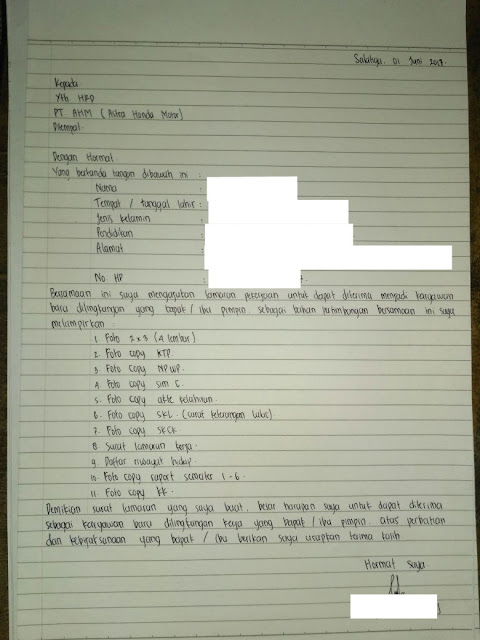 Salatiga, 01 Juni 2017.
Kepada
Yth HRD
PT AHM (Astra Honda Motor)
Ditempat.
Dengan Hormat
Yang bertanda tangan dibawah ini :
Nama :
Tempat / tanggal lahir :
Jenis kelamin :
Pendidikan :
Alamat :
No. HP :
Bersamaan ini saya mengajukan lamaran pekerjaan untuk dapat diterima menjadi karyawan
baru dilingkungan yang bapak / ibu pimpin sebagai bahan pertimbangan bersamaan ini saya
melampirkan :
1. Foto 2x3 (4 lembar)
2. Foto copy KTP.
3. Foto copy NPWP.
4. Foto copy sim C.
5. Foto copy akte kelahiran.
6. Foto copy SKL. (surat keterangan lulus)
7. Foto copy SKCK
8. Surat lamaran kerja.
9. Daftar riwayat hidup.
10. Foto copy raport semester 1-6.
11. Foto copy kk.
Demikian surat lamaran yang saya buat, besar harapan saya untuk dapat diterima
sebagai karyawan baru dilingkungan kerja yang bapak / ibu pimpin. atas perhatian
dan kebijaksanaan yang bapak / ibu berikan saya ucapkan terima kasih
Hormat saya